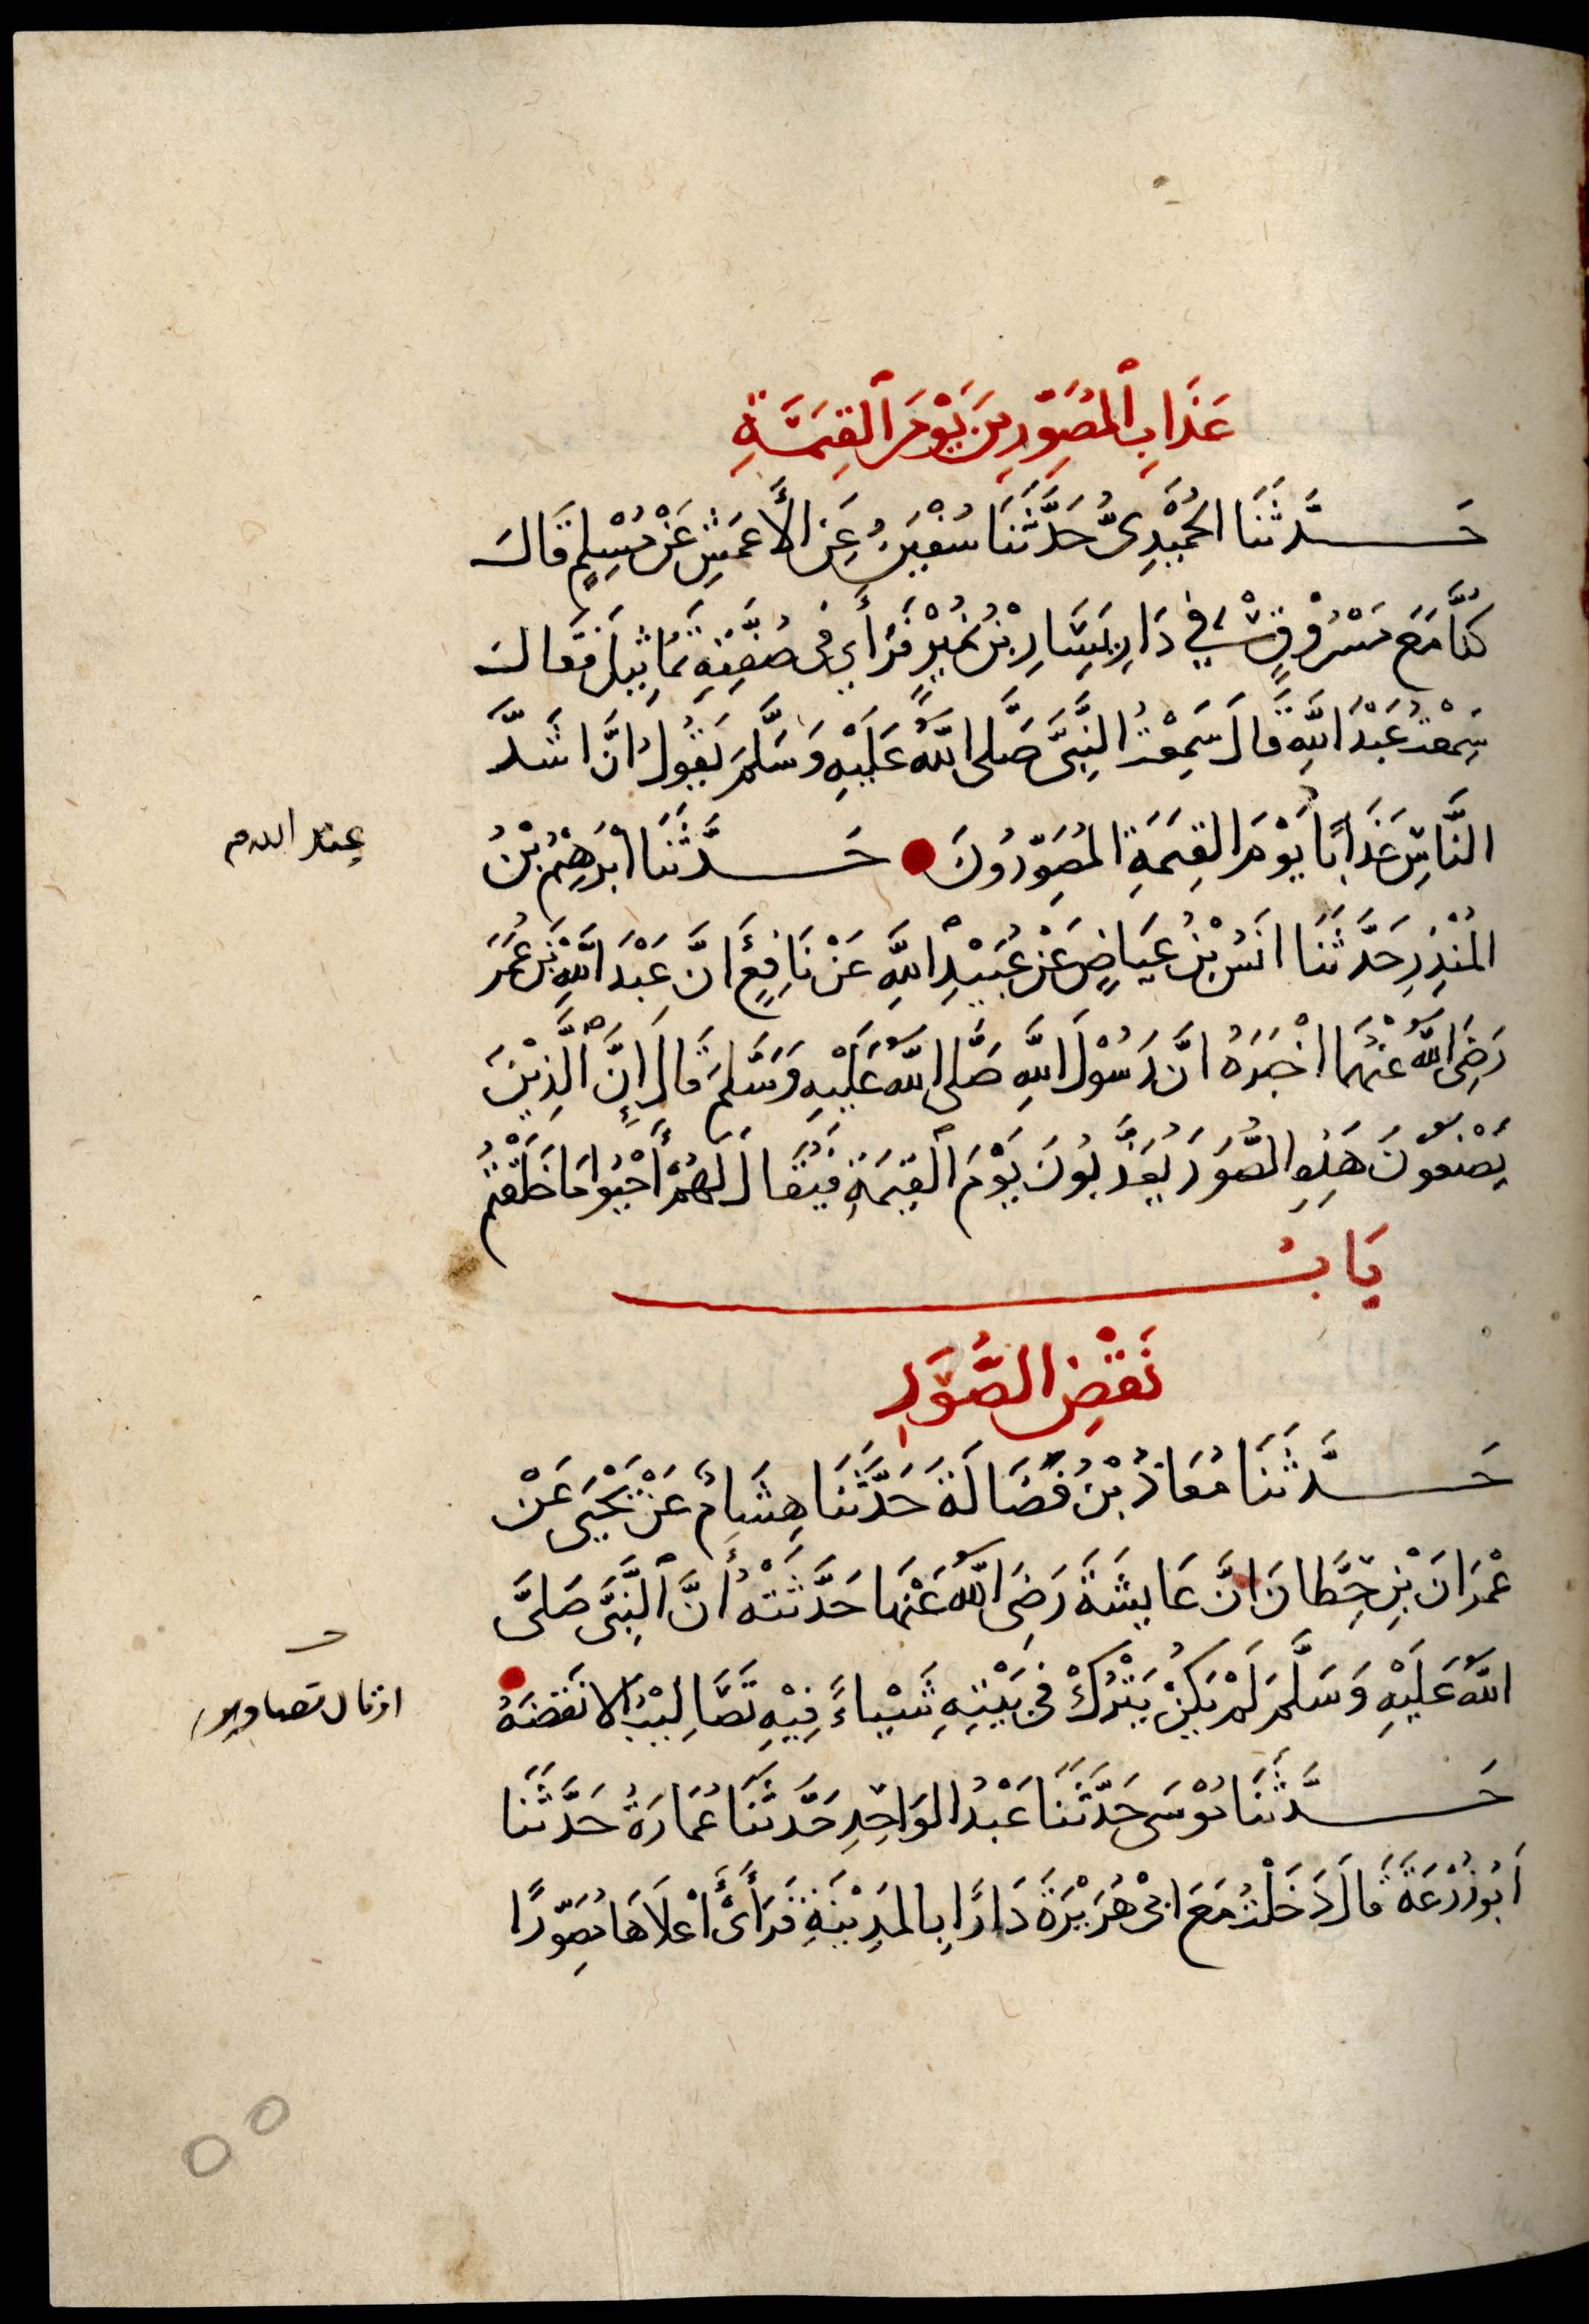 عَذَابِ ٱلمُصَوِّرِينَ يَوْمَ ٱلقِيٰمَةِ
حَدَّثَنَا الحُمَيْدِىُّ حَدَّثَنَا سُفْيٰنُ عَنِ الأَعمَشِ عَنْ مُسْلِمٍ قَالَ
كُنَّا مَعَ مَسْرُوْقٍ فِي دَارِ يَسَارِ بْنِ نُمَيْرٍ فَرَأَي فى صُفَّتِهِ تَمَاثِيلَ فَقَالَ
سَمِعْتُ عَبْدَ اللَّهِ قَالَ سَمِعْتُ النَّبِىَّ صَلَّى اللَّهُ عَلَيْهِ وَسَلَّمَ يَقُولُ انَّ اشَدَّ
النَّاسِ عَذَابًا يَوْمَ القِيمَةِ المُصَوِّرُونَ حَدَّثَنَا ابْرٰهِيْمُ بْنُ
عند الله م
المُنْذِرِ حَدَّثَنَا انَسُ بْنُ عِيَاضٍ عَنْ عُبَيْدِ اللَّهِ عَنْ نَافِعٍ أَنَّ عَبْدَ اللَّهِ بْنَ عُمَرَ
رَضِىَ اللَّهُ عَنْهُمَا اخْبَرَهُ انَّ رَسُوْلَ اللَّهِ صَلَّى اللَّهُ عَلَيْهِ وَسَلَّمَ قَالَ إِنَّ الَّذِيْنَ
يَصْنَعُوْنَ هَذِهِ الصُّوَرَ يُعَذَّبُونَ يَوْمَ ٱلقِيمَةِ فَيُقَالُ لَهُمْ أَحْيُوا مَا خَلَقْتُمْ
بَابُ
نَقْضِ الصُّوَرِ
حَدَّثَنَا مُعَاذُ بْنُ فَضَالَةَ حَدَّثَنَا هِشَامٌ عَنْ يَحْيَى عَنْ
عِمْرَانَ بْنِ حِطَّانَ انَّ عَايِشَةَ رَضِىَ اللَّهُ عَنْهَا حَدَّثَتْهُ أَنَّ ٱلنَّبِىَّ صَلَّى
اللَّهُ عَلَيْهِ وَسَلَّمَ لَمْ يَكُنْ يَتْرُكْ فى بَيْتِهِ شَيْاءً فِيْهِ تَصَالِيْبُ الا نَقَضَهُ
تصاوير
حَدَّثَنَا مُوْسَى حَدَّثَنَا عَبْدُ الوَاحِدِ حَدَّثَنَا عُمَارَةُ حَدَّثَنَا
اَبُو زُرْعَةَ قَالَ دَخَلْتُ مَعَ ابى هُرَيْرَةَ دَارًا بِالمَدِيْنَةِ فَرَأَىٰ أَعْلَاهَا مُصَوِّرًا